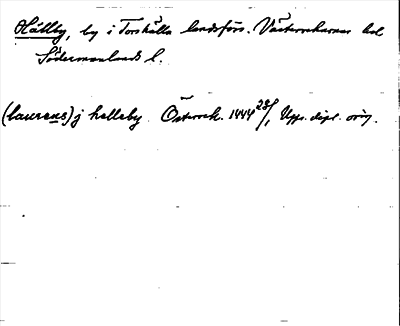 Hällby, by i Torshälla landsförs. Västerrekarne hd
Södermanlands l.
(laurens) j helleby Österrek. 1444 28/1 Upps. dipl. orig.